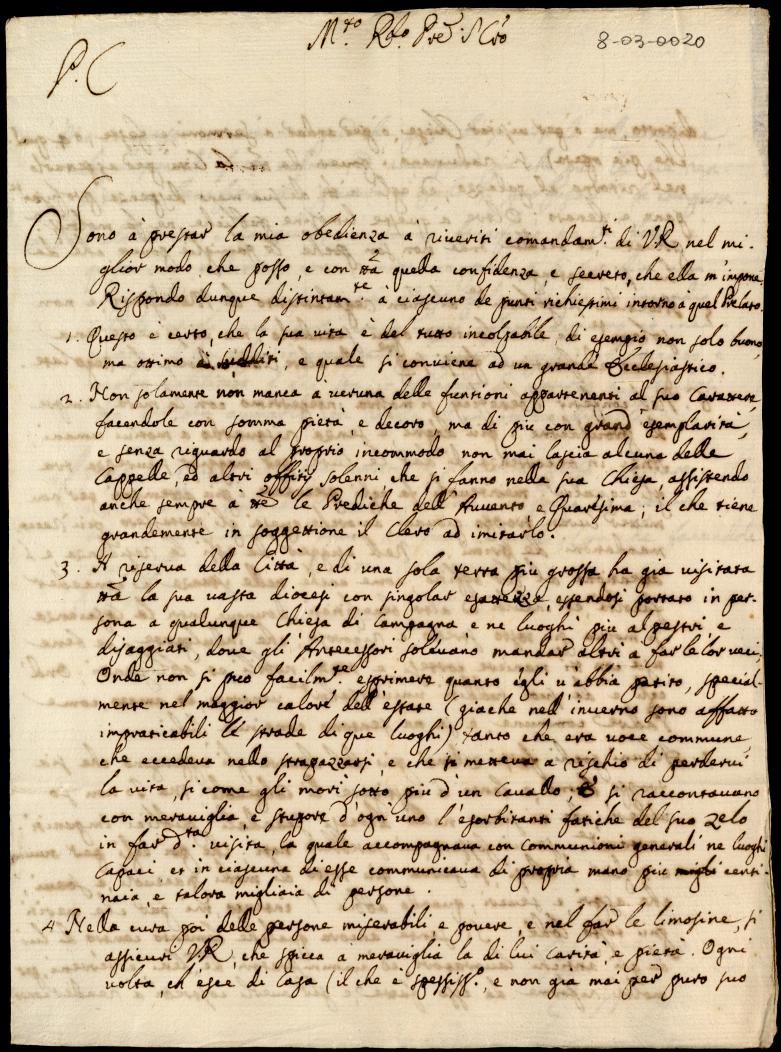 M.to R.do Pre. S Cro
8-03-0020
P. C
Sono à prestar la mia obedienza à riveriti comandam.ti di V.R nel mi-
glior modo che posso, e con ttã quella confidenza e secreto, che ella m'impone.
Rispondo dunque distintam.te à ciascuno de punti richiestimi intorno à quel Prelato.
1. Questo è certo, che la sua vita è del tutto incolpabile, di esempio non solo buono,
ma ottimo e quale si conviene ad un grande Ecclesiastico.
2. Non solamente non manca à veruna delle funtioni appartenenti al suo Carattere,
facendole con somma pietà, e decoro, ma di più con grand' esemplarità,
e senza riguardo al proprio incommodo non mai lascia alcuna delle
Cappelle, ed altri offitij solenni che si fanno nella sua Chiesa, assistendo
anche sempre à ttẽ le Prediche dell' Auuento e Quaresima; il che tiene
grandemente in soggettione il Clero ad imitarlo.
3. A riserva della Città, e di una sola terra più grossa, ha già visitata
ttã la sua vasta diocesi con singolar esattezza, essendosi portato in per-
sona a qualunque Chiesa di Campagna e ne luoghi più alpestri, e
disaggiati, dove gli Antecessori soleuano mandar altri a far le lor veci.
Onde non si può facilm.te esprimere quanto egli u'abbia patito, special-
mente nel maggior calore dell' estate (giache nell' inverno sono affatto
impraticabili le strade di que luoghi) tanto che era voce commune,
che eccedeva nello strapazzarsi, e che si metteva a rischio di perdervi
la vita, si come gli morì sotto più d'un Cavallo; E si raccontavano
con meraviglia, e stupore d'ogn' uno l'esorbitanti fatiche del suo zelo
in far d.ta visita, la quale accompagnava con Communioni generali ne luoghi
capaci, et in ciascuna di esse communicava di propria mano più centi-
naia, e talora migliaia di persone.
4 Nella cura poi delle persone miserabili, e povere, e nel far le limosine, si
assicuri V.R, che spicca a meraviglia la di lui carità, e pietà. Ogni
volta, ch'esce di Casa (il che è spessiss.o, e non già mai per puro suo